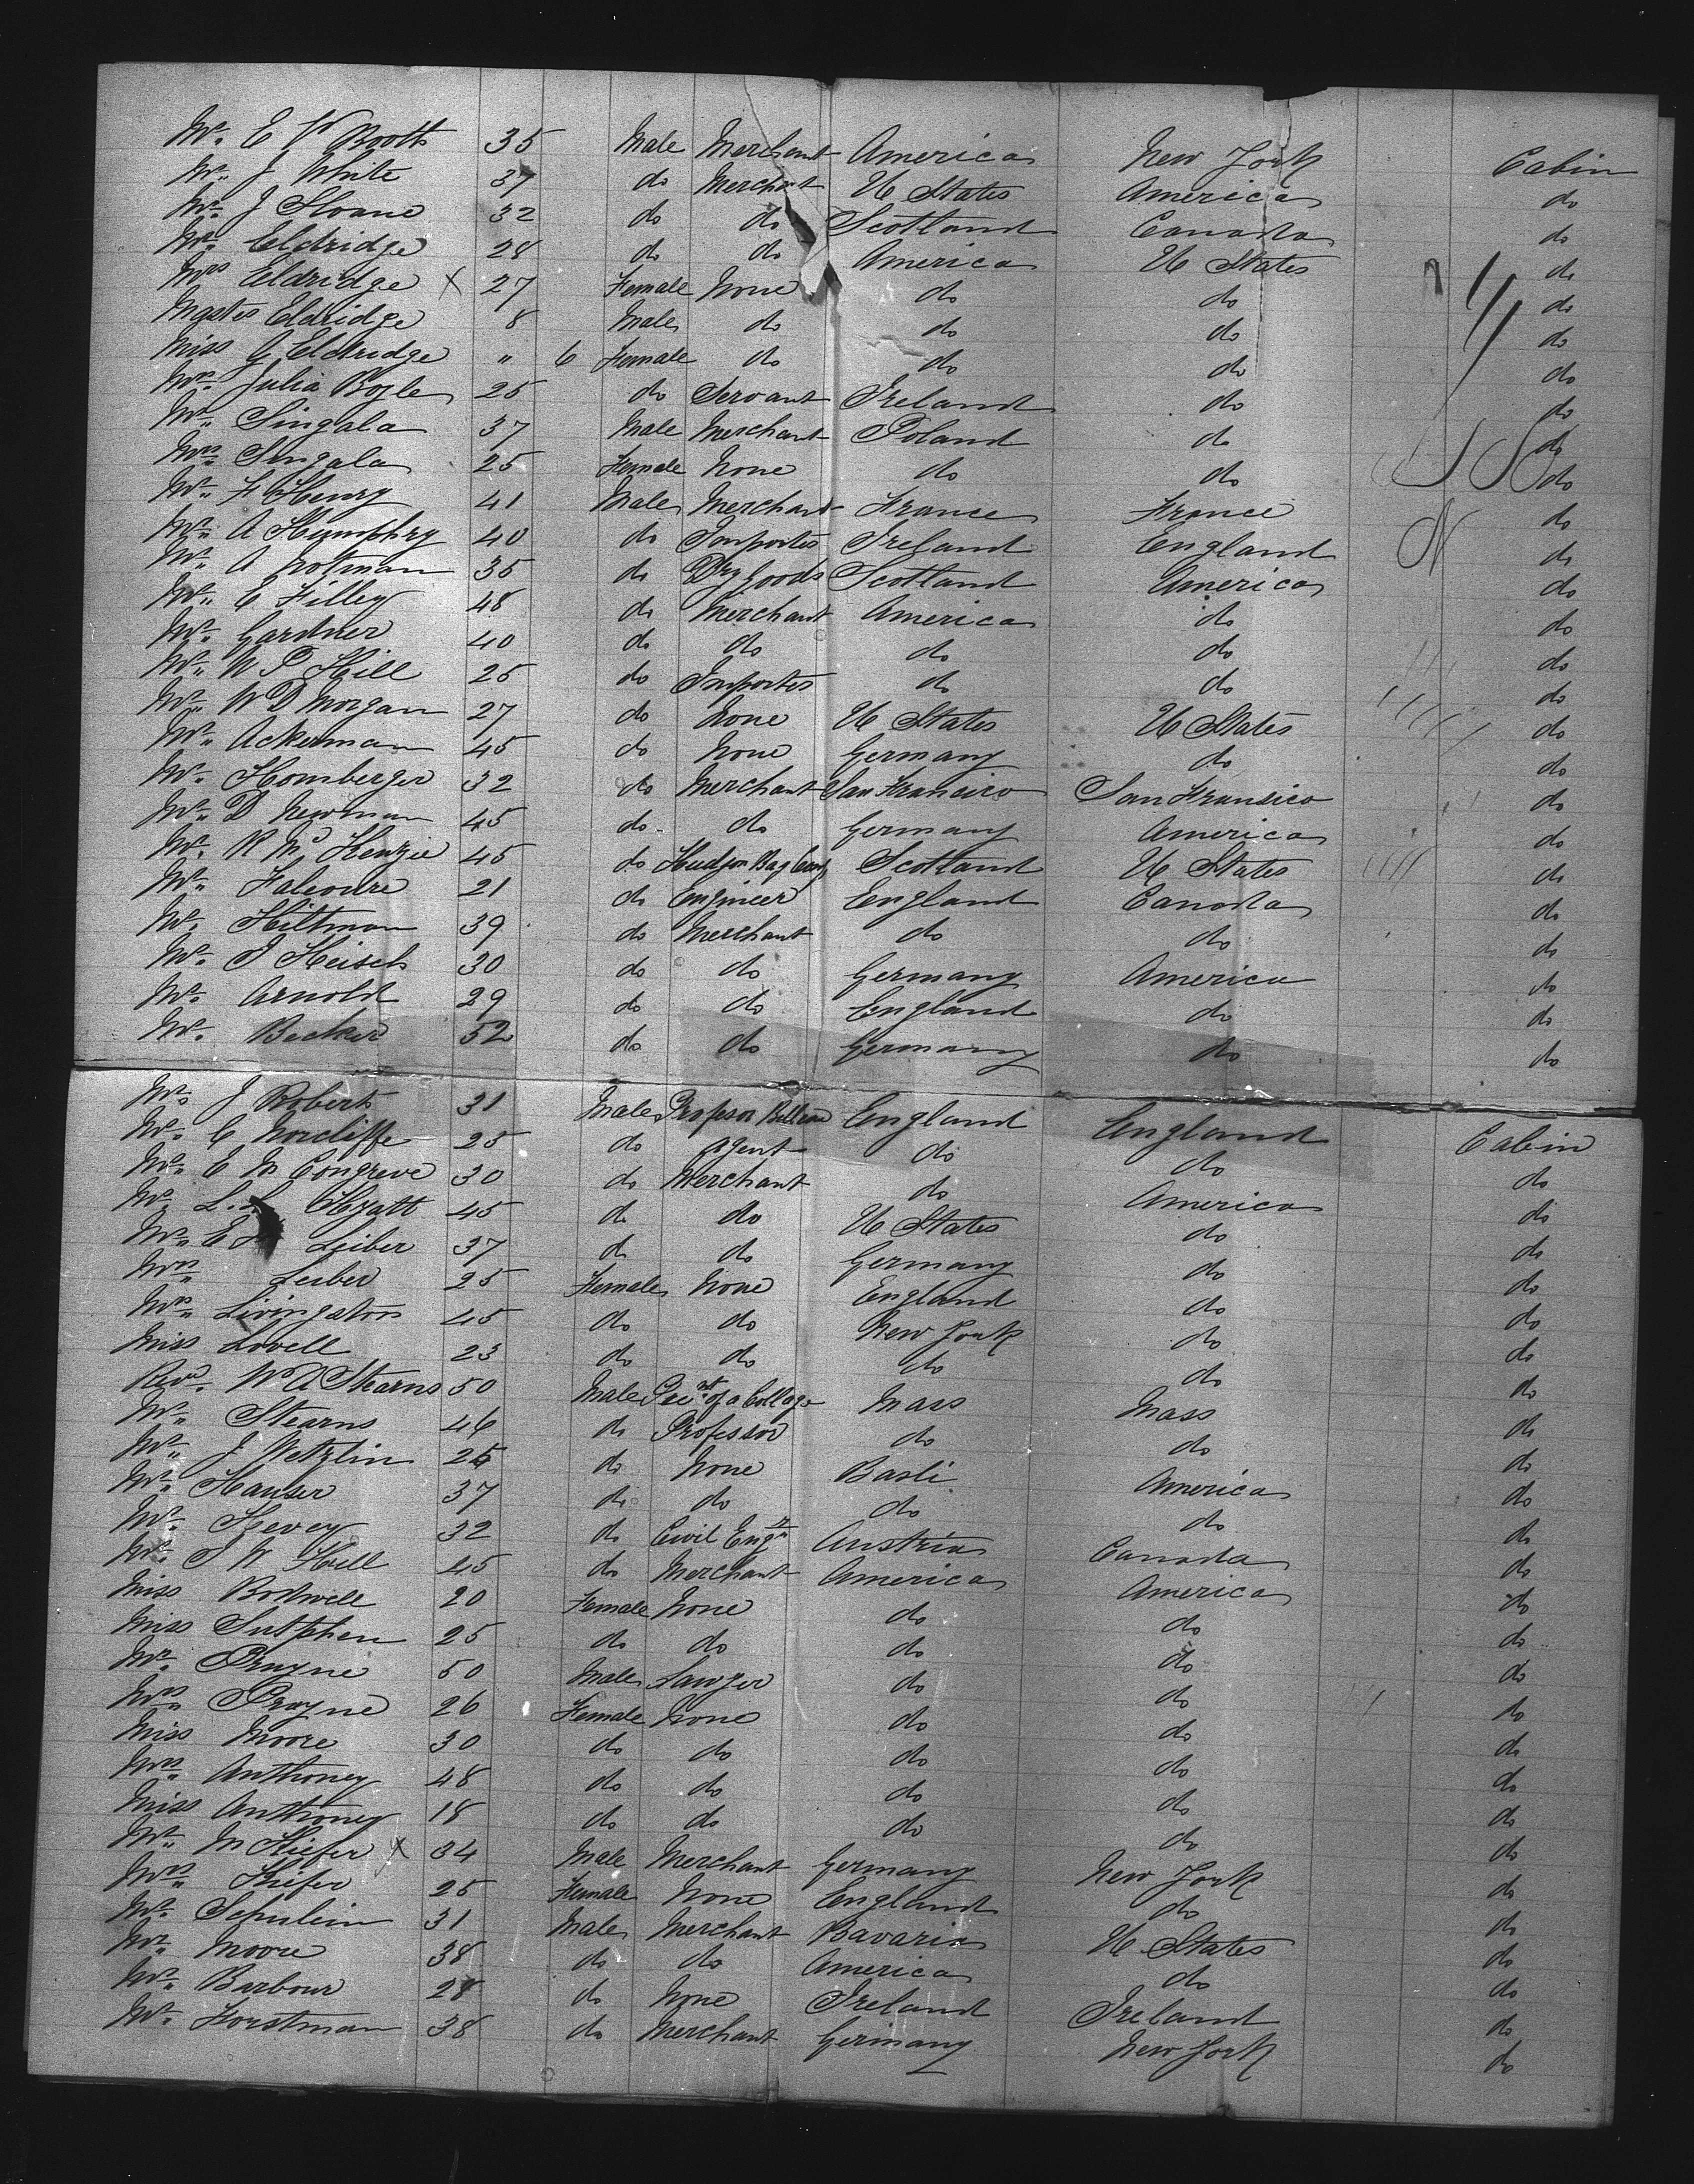 Mr. E V Booth 35 Male Merchant America New York Cabin
Mr. J White 37 do Merchant U States America do
Mr. J Sloane 32 do do Scotland Canada do
Mr. Eldridge 28 do do America U States do
Mrs Eldridge X 27 Female None do do do
Master Eldridge 8 Male do do do do
Miss G Eldridge " 6 Female do do do do
Mrs. Julia Boyle 25 do Servant Ireland do do
Mr. Singala 37 Male Merchant Poland do do
Mrs. Singala 25 Female None do do do
Mr. F Henry 41 Male Merchant France France do
Mr. A Humphry 40 do Importer Ireland England do
Mr. A 35 do Dry Goods Scotland America do
Mr. C Filley 48 do Merchant America do do
Mr. Gardner 40 do do do do do
Mr. W P Hill 25 do Importer do do do
Mr. W D Morgan 27 do None U States U States do
Mr. Ackerman 45 do None Germany do do
Mr. Homberger 32 do Merchant San Francisco San Fransico do
Mr. D Newman 45 do do Germany America do
Mr. R Mc Kenzie 45 do Hudson Bay Scotland U States do
Mr. 21 do Engineer England Canada do
Mr. Hiltman 39 do Merchant do do do
Mr. J Heisch 30 do do Germany America do
Mr. Arnold 29 do do England do do
Mr. Becker 52 do do Germany do do
Mr. J Roberts 31 Male Professor England England Cabin
Mr. C Norcliffe 25 do Agent do do do
Mr. E M Congreve 30 do Merchant do America do
Mr. L. L Hyatt 45 do do U States do do
Mr. E Leiber 37 do do Germany do do
Mrs. Leiber 25 Female None England do do
Mrs. Livingston 45 do do New York do do
Miss Lovell 23 do do do do do
Revd. W A Stearns 50 Male of a College Mass Mass do
Mr. Stearns 46 do Professor do do do
Mr. J Wetzlin 25 do None Basli America do
Mr. Hauser 37 do do do do do
Mr. 32 do Civil Engr Austria Canada do
Mr. J W Hill 45 do Merchant America America do
Miss Bothwell 20 Female None do do do
Miss Sutphen 25 do do do do do
Mr. Pruyne 50 Male Lawyer do do do
Mrs. Pruyne 26 Female None do do do
Miss Moore 30 do do do do do
Mrs. Anthoney 48 do do do do do
Miss Anthoney 18 do do do do do
Mr. M Kiefer X 34 Male Merchant Germany New York do
Mrs. Kiefer 25 Female None England do do
Mr. Schulein 31 Male Merchant Bavaria U States do
Mr. Moore 38 do do America do do
Mr. Barbour 28 do None Ireland Ireland do
Mr. Horstman 38 do Merchant Germany New York do